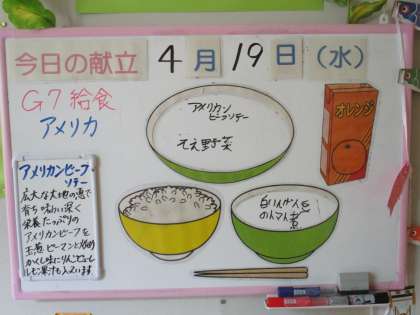 今日の献立 4月19日(水)
G7給食
アメリカ
アメリカン
ビーフソテー
オレンジ
アメリカンビーフ
ソテー
広大な大地の恵で
育ち味わい深く
栄養たっぷりの
アメリカンビーフを
玉葱ピーマンと炒め
かくし味にりんごピューレ
レモン果汁も入っています
白いんげんと
のトマト煮